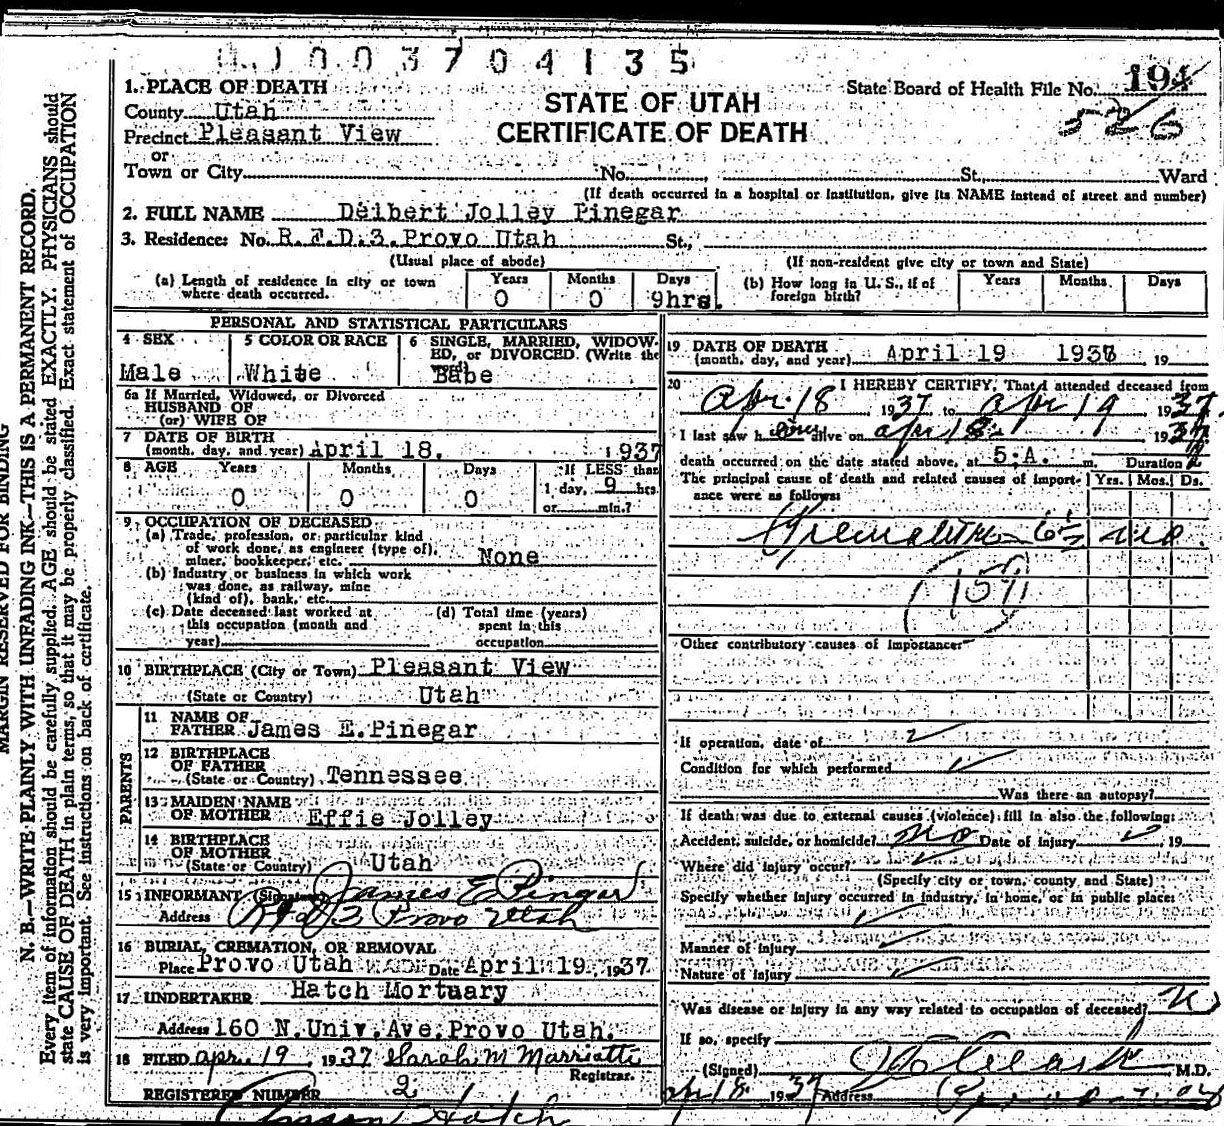 003704135
1. PLACE OF DEATH
County Utah
Precinct Pleasant View
or
Town or City No. St., Ward
STATE OF UTAH
CERTIFICATE OF DEATH
State Board of Health File No. 194
526
(If death occurred in a hospital or institution, give its NAME instead of street and number)
2. FULL NAME Delbert Jolley Pinegar
3. Residence: No. R.F.D.3. Provo Utah St.,
(Usual place of abode) (If non-resident give city or town and State)
(a) Length of residence in city or town where death occurred. Years 0 Months 0 Days 9hrs.
(b) How long in U. S., if of foreign birth? Years Months Days
PERSONAL AND STATISTICAL PARTICULARS
4 SEX Male
5 COLOR OR RACE White
6 SINGLE, MARRIED, WIDOWED, or DIVORCED. (Write the word) Babe
6a If Married, Widowed, or Divorced
HUSBAND OF
(or) WIFE OF
7 DATE OF BIRTH
(month, day, and year) April 18, 1937
8 AGE Years 0 Months 0 Days 0 If LESS than 1 day, 9 hrs. or min.?
9 OCCUPATION OF DECEASED
(a) Trade, profession, or particular kind
of work done, as engineer (type of),
miner, bookkeeper, etc. None
(b) Industry or business in which work
was done, as railway, mine
(kind of), bank, etc.
(c) Date deceased last worked at this occupation (month and year)
(d) Total time (years) spent in this occupation
10 BIRTHPLACE (City or Town) Pleasant View
(State or Country) Utah
PARENTS
11 NAME OF
FATHER James E. Pinegar
12 BIRTHPLACE
OF FATHER
(State or Country) Tennessee
13 MAIDEN NAME
OF MOTHER Effie Jolley
14 BIRTHPLACE
OF MOTHER
(State or Country) Utah
15 INFORMANT (Signature) James E Pinegar
Address Rfd 3 Provo Utah
16 BURIAL, CREMATION, OR REMOVAL
Place Provo Utah Date April 19, 1937
17 UNDERTAKER Hatch Mortuary
Address 160 N. Univ. Ave. Provo Utah.
18 FILED Apr. 19 1937 Sarah M Marriott
Registrar.
REGISTERED NUMBER 2
Hatch
19 DATE OF DEATH
(month, day, and year) April 19 1937 19
20 I HEREBY CERTIFY, That I attended deceased from
Apr. 18 1937 to Apr 19 1937
I last saw him alive on Apr 18 1937
death occurred on the date stated above, at 5:A. m. Duration
The principal cause of death and related causes of importance were as follows: Yrs. Mos. Ds.
Premature 6½ mo.
159
Other contributory causes of importance:
If operation, date of
Condition for which performed
Was there an autopsy?
If death was due to external causes (violence) fill in also the following:
Accident, suicide, or homicide? No Date of injury 19
Where did injury occur?
(Specify city or town, county and State)
Specify whether injury occurred in industry, in home, or in public place:
Manner of injury
Nature of injury
Was disease or injury in any way related to occupation of deceased? No
If so, specify
(Signed) M.D.
Apr 18 1937 Address
MARGIN RESERVED FOR BINDING
N. B.—WRITE PLAINLY WITH UNFADING INK—THIS IS A PERMANENT RECORD.
Every item of information should be carefully supplied. AGE should be stated EXACTLY. PHYSICIANS should
state CAUSE OF DEATH in plain terms, so that it may be properly classified. Exact statement of OCCUPATION
is very important. See instructions on back of certificate.